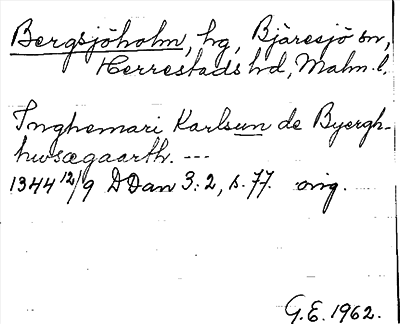 Bergsjöholm, hg, Bjäresjö sn,
Herrestads hd, Malm. l.
Inghemari Karlsun de Byergh-
husægaarth. ---
1344 12/9 DDan 3:2, s. 77. orig.
G.E. 1962.